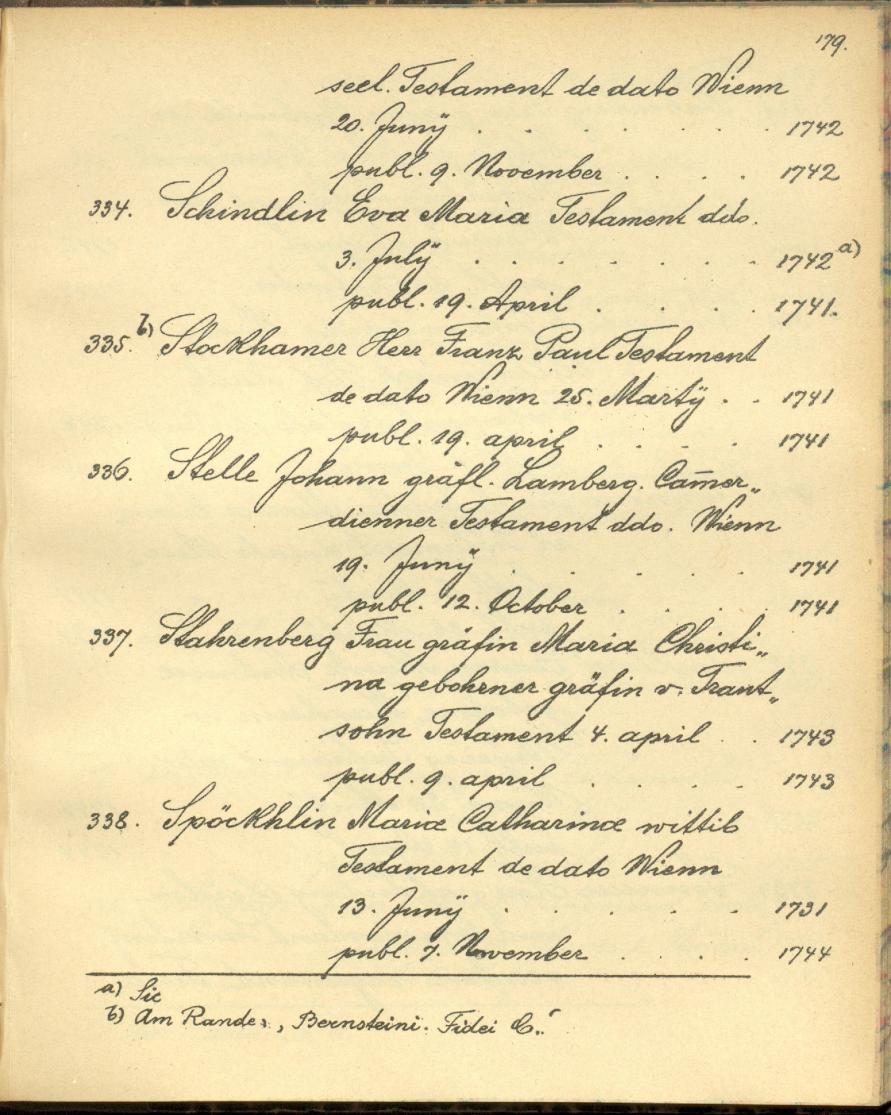 179.
seel. Testament de dato Wienn
20. Junÿ . . . . . . . 1742
publ. 9. November . . . . 1742
334. Schindlin Eva Maria Testament ddo.
3. Julÿ . . . . . . . 1742 a)
publ. 19. April . . . . 1741.
335. b) Stockhamer Herr Franz Paul Testament
de dato Wienn 25. Martÿ . . 1741
publ. 19. april . . . . 1741
336. Stelle Johann gräfl. Lamberg. Cam̄er„
dienner Testament ddo. Wienn
19. Junÿ . . . . . . 1741
publ. 12. October . . . . 1741
337. Stahrenberg Frau gräfin Maria Christi„
na gebohrner gräfin v. Traut„
sohn Testament 4. april . . 1743
publ. 9. april . . . . 1743
338. Spöckhlin Maria Catharina wittib
Testament de dato Wienn
13. Junÿ . . . . . . 1731
publ. 7. November . . . . 1744
a) Sic
b) Am Rande: , Bernsteini. Fidei C.'